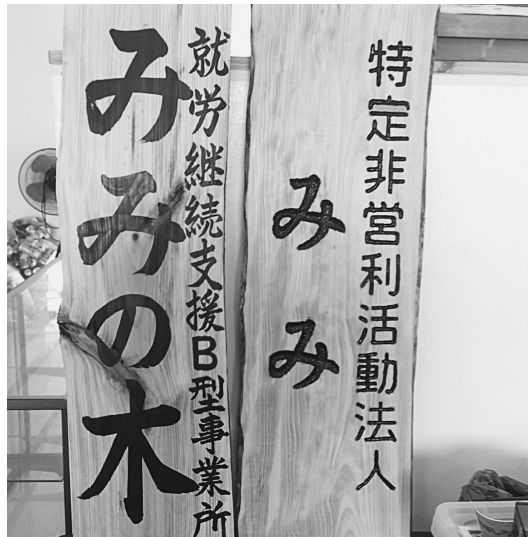 特定非営利活動法人
みみ
就労継続支援B型事業所
みみの木